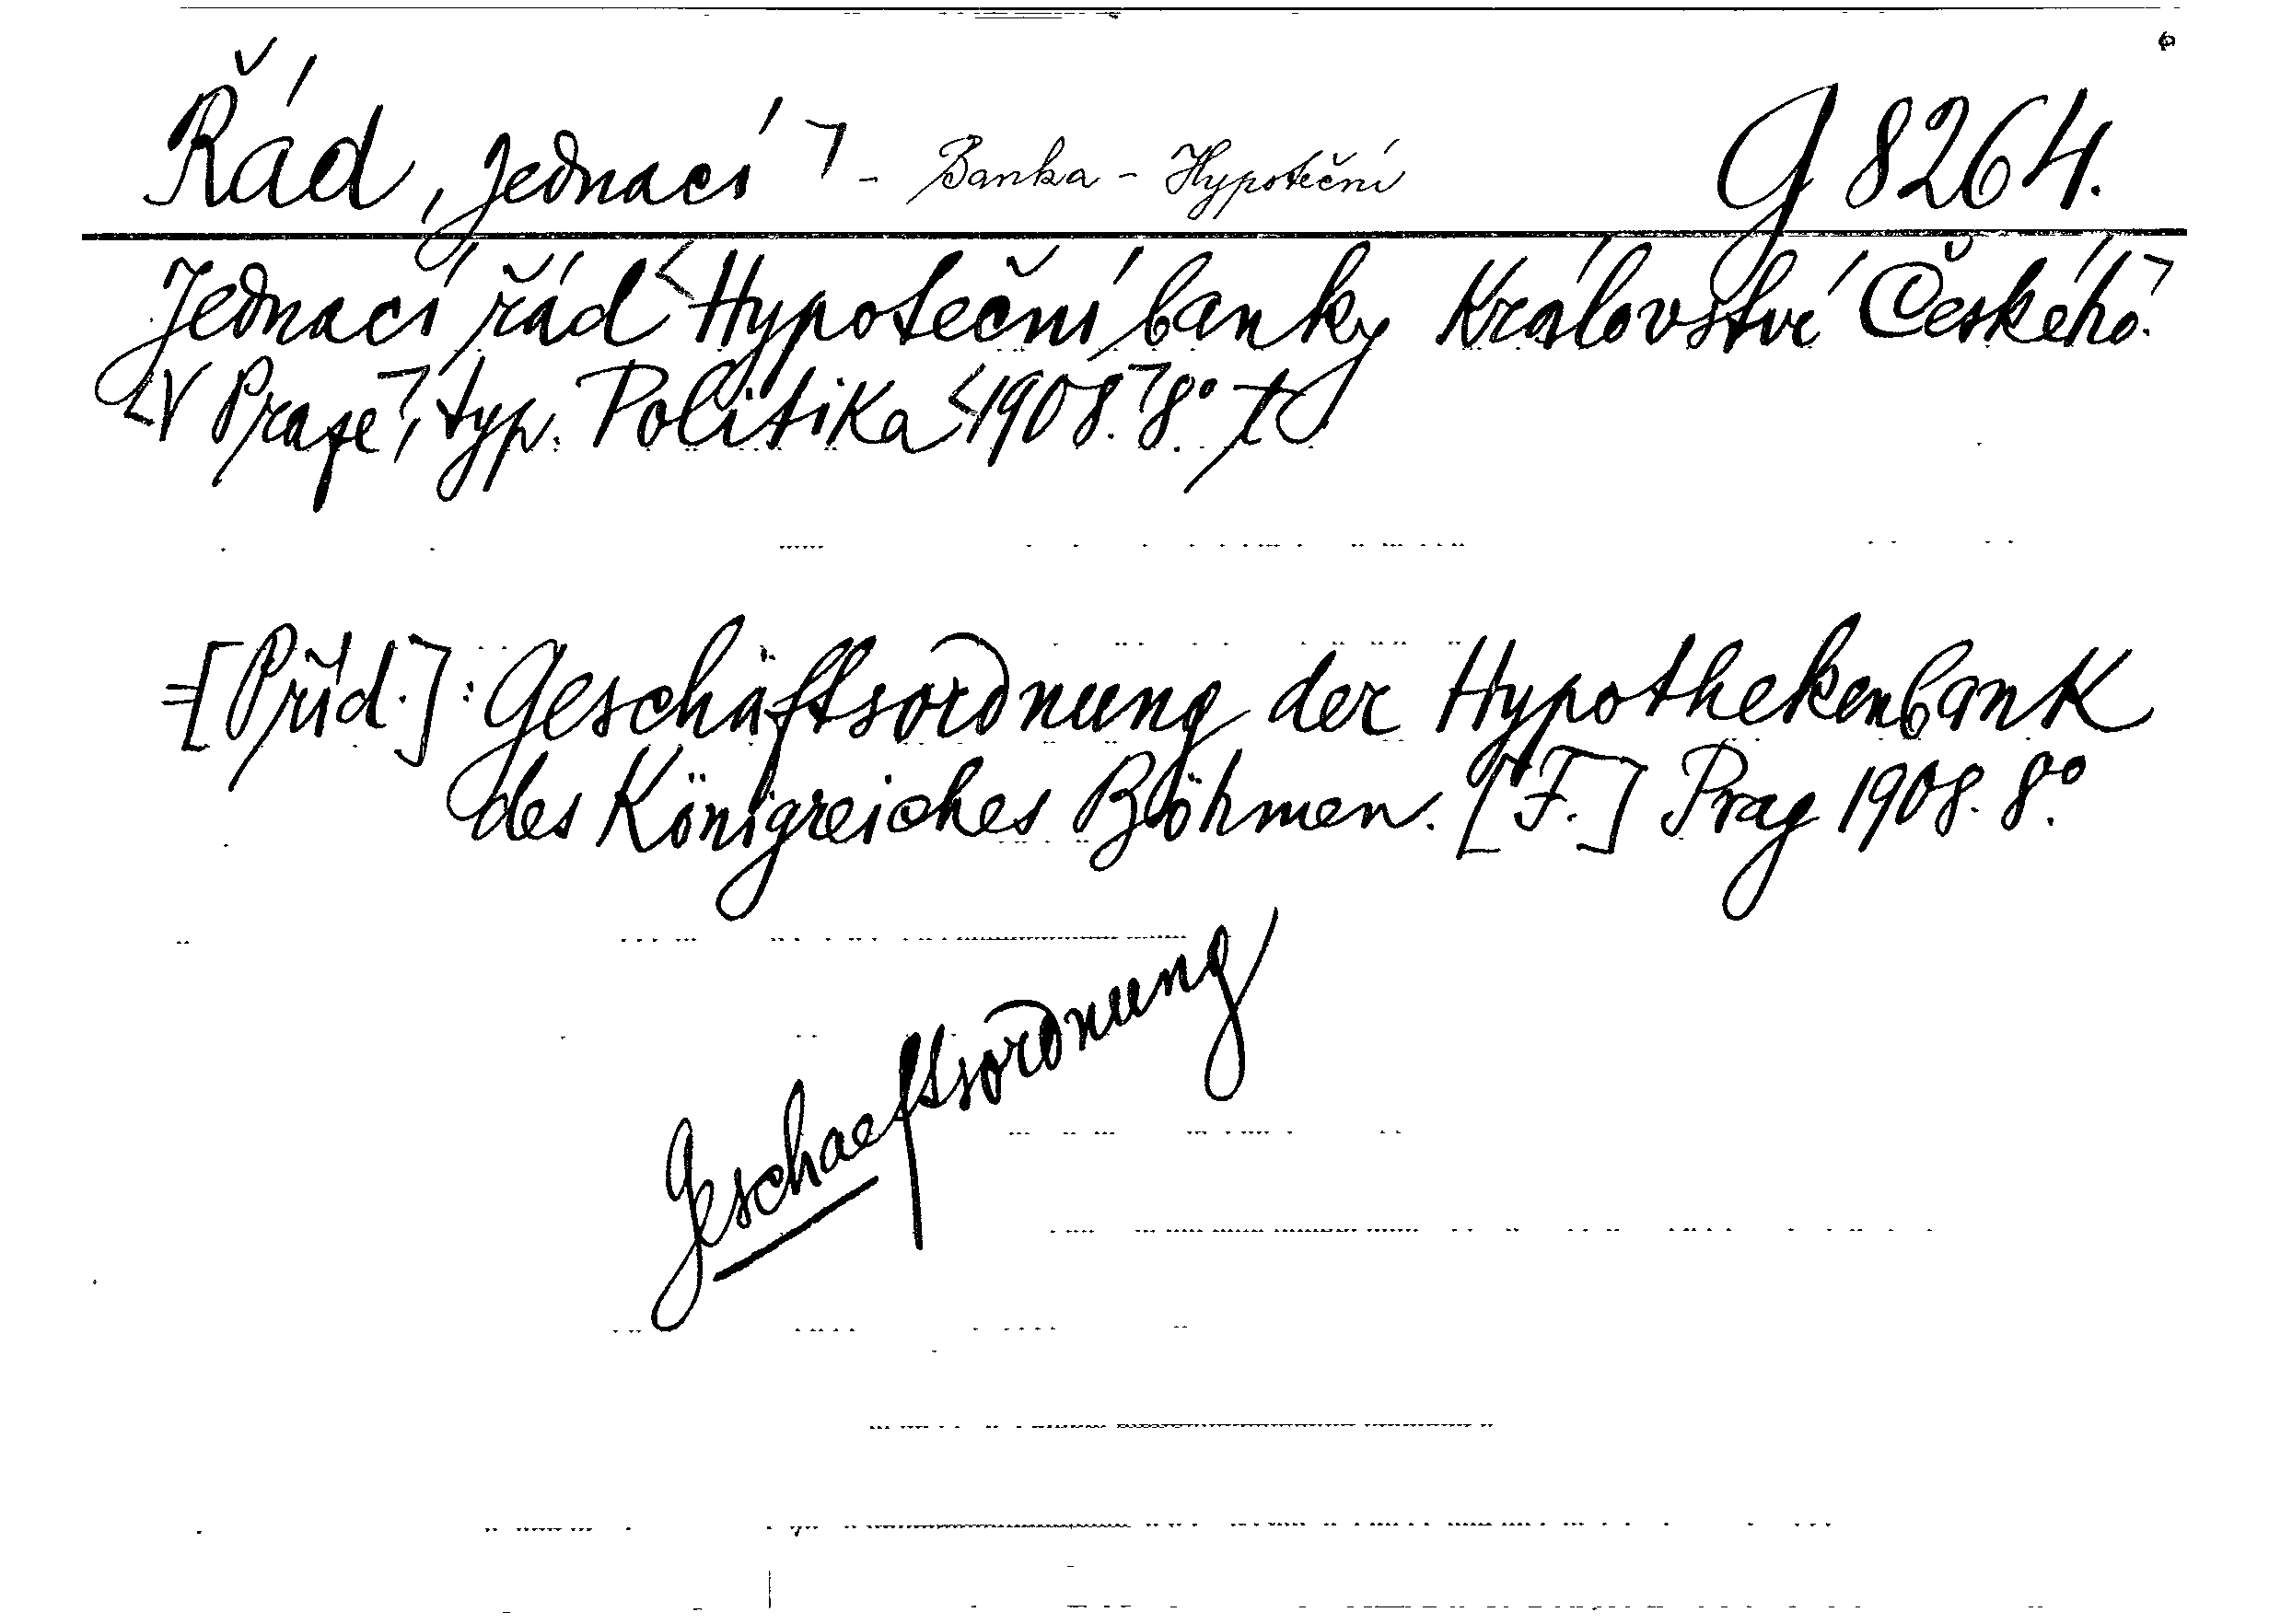 Řád, jednací ⌝ - Banka - Hypoteční G 8264.
Jednací řád <Hypoteční banky Království Českého.⌝
<V Praze⌝, typ. Politika <1908.⌝ 8°.
=[Příd.]: Geschäftsordnung der Hypothekenbank
des Königreiches Böhmen. [F.] Prag 1908. 8°.
Geschaeftsordnung